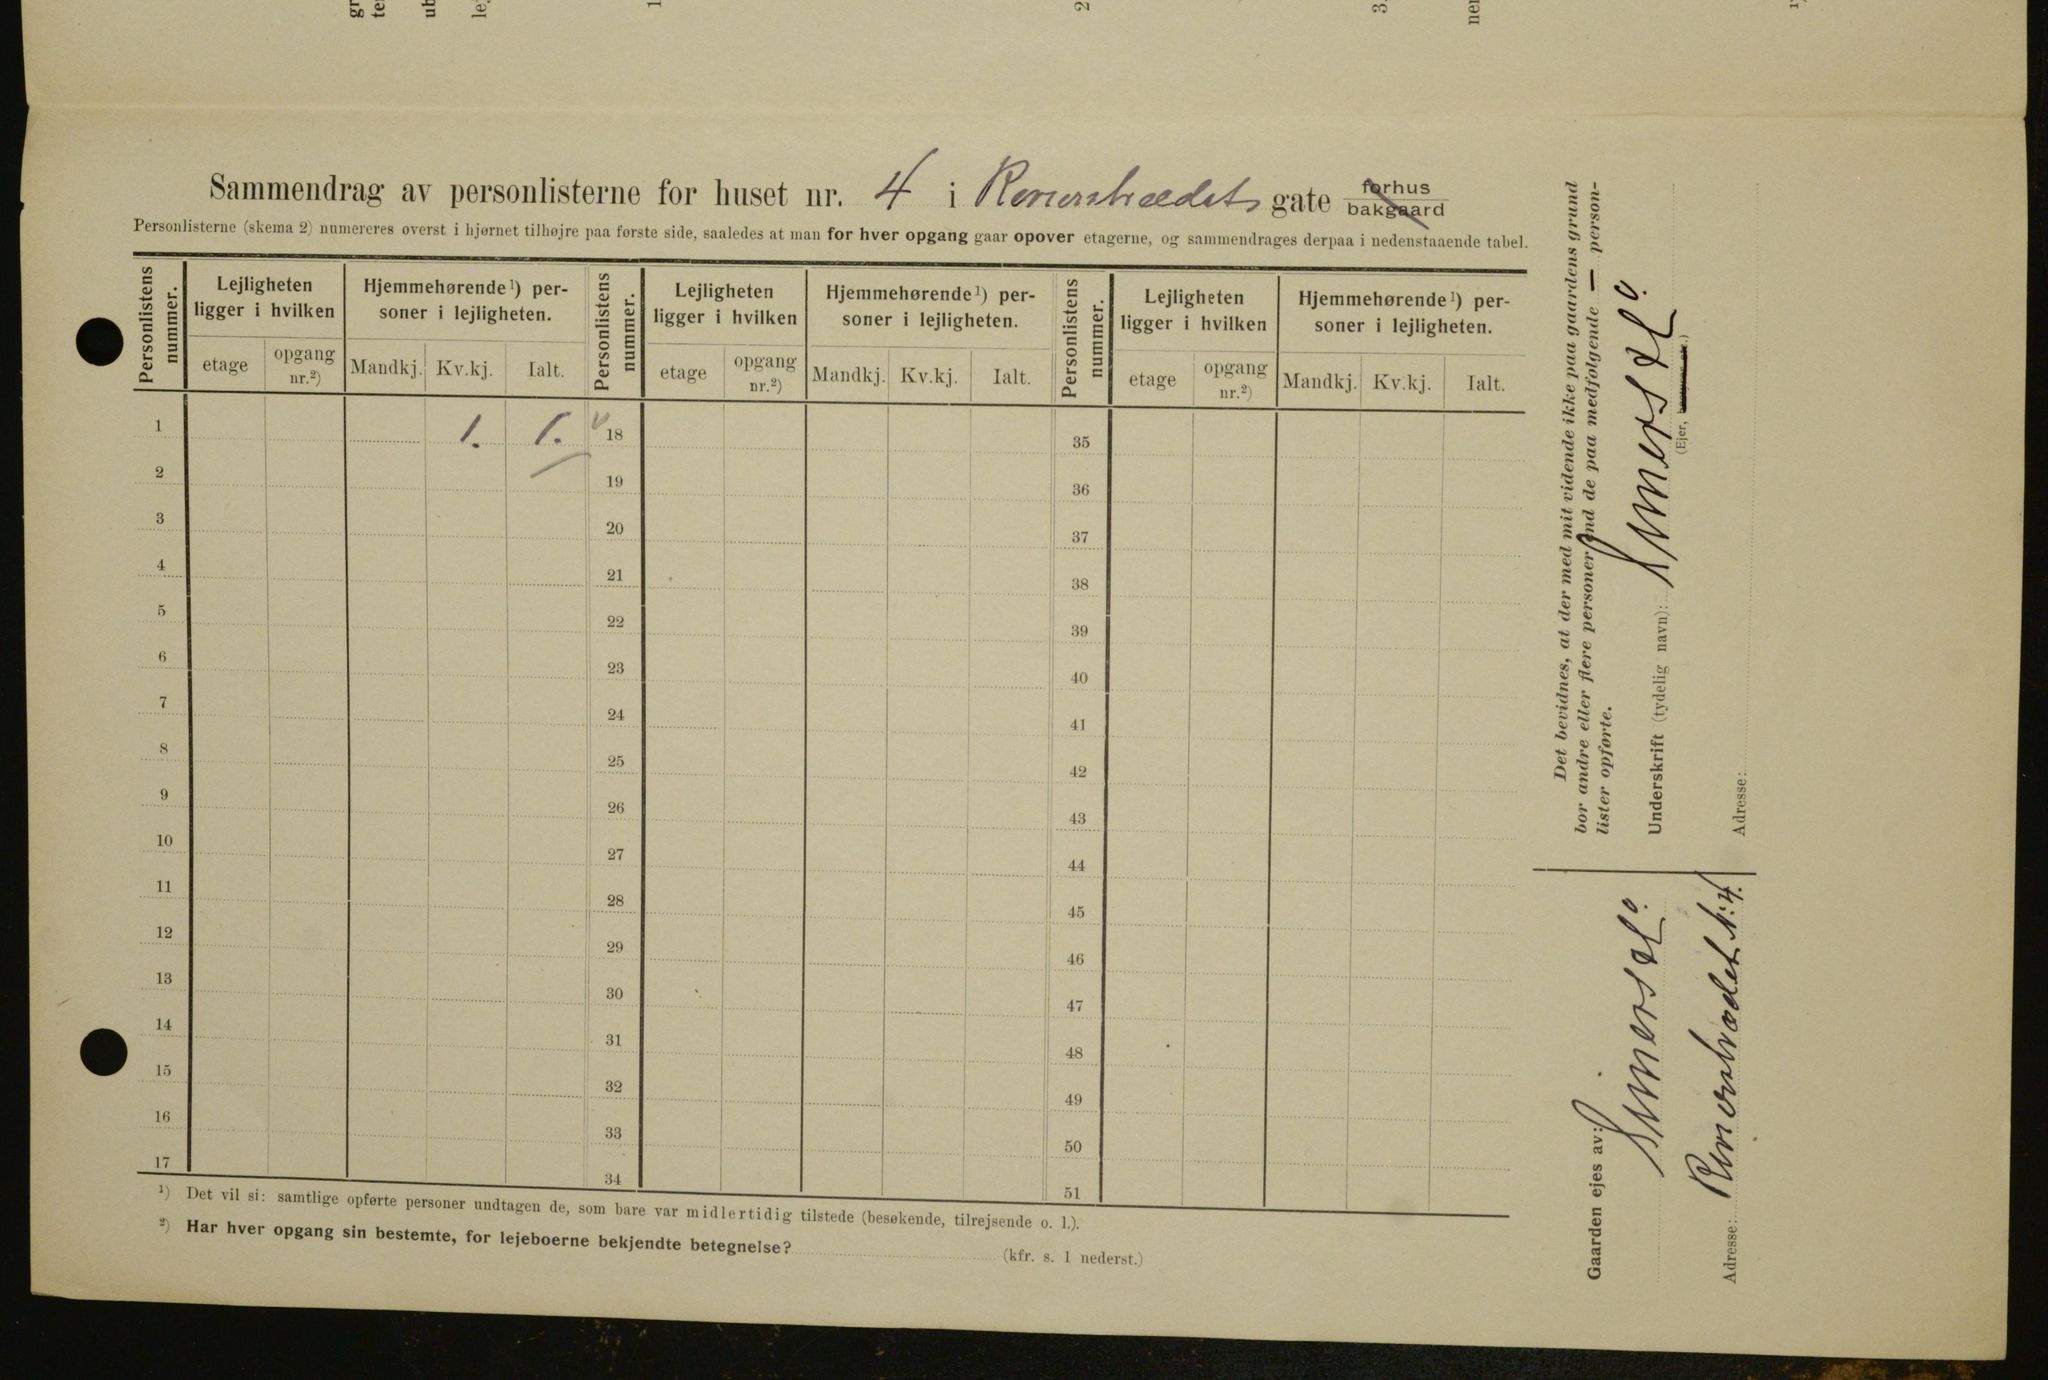 Sammendrag av personlisterne for huset nr. 4 i Romerstrædets gate forhus bakgaard
Personlisterne (skema 2) numereres øverst i hjørnet tilhøjre paa første side, saaledes at man for hver opgang gaar opover etagerne, og sammendrages derpaa i nedenstaaende tabel.
Personlistens nummer. Lejligheten ligger i hvilken Hjemmehørende¹) personer i lejligheten. Personlistens nummer. Lejligheten ligger i hvilken Hjemmehørende¹) personer i lejligheten. Personlistens nummer. Lejligheten ligger i hvilken Hjemmehørende¹) personer i lejligheten.
etage opgang nr.²) Mandkj. Kv.kj. Ialt. etage opgang nr.²) Mandkj. Kv.kj. Ialt. etage opgang nr.²) Mandkj. Kv.kj. Ialt.
1 1. 1. 18 35
2 19 36
3 20 37
4 21 38
5 22 39
6 23 40
7 24 41
8 25 42
9 26 43
10 27 44
11 28 45
12 29 46
13 30 47
14 31 48
15 32 49
16 33 50
17 34 51
¹) Det vil si: samtlige opførte personer undtagen de, som bare var midlertidig tilstede (besøkende, tilrejsende o. l.).
²) Har hver opgang sin bestemte, for lejeboerne bekjendte betegnelse? (kfr. s. 1 nederst.)
Det bevidnes, at der med mit vidende ikke paa gaardens grund
bor andre eller flere personer end de paa medfølgende — person-
lister opførte.
Underskrift (tydelig navn):
(Ejer,
Adresse:
Gaarden ejes av:
Adresse: Romerstrædet N: 4.